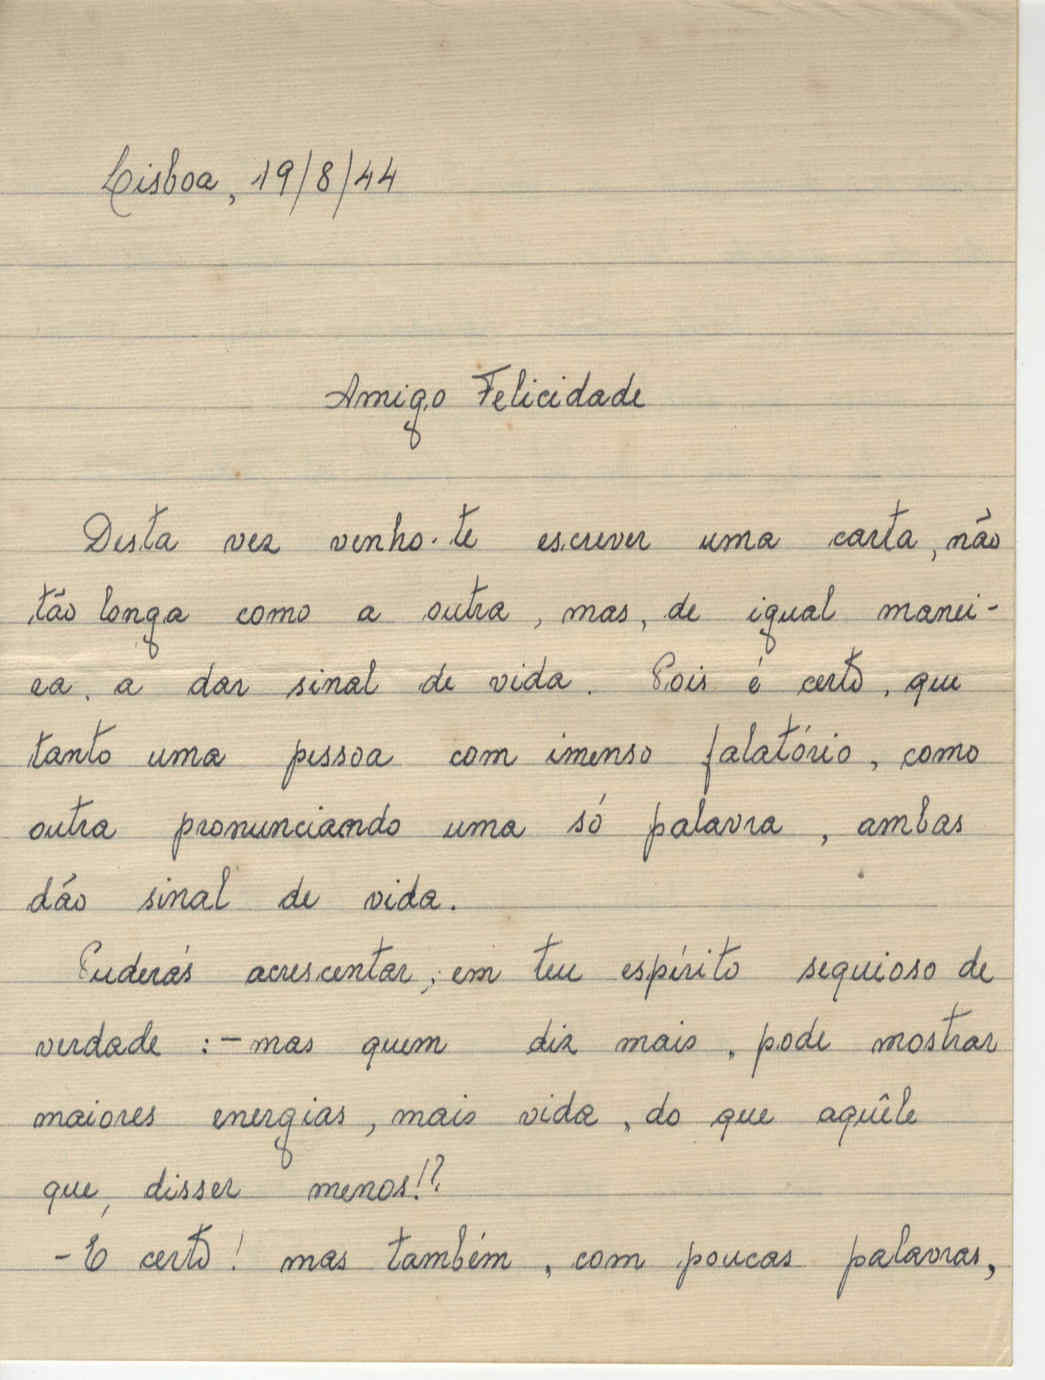 Lisboa, 19/8/44
Amigo Felicidade
Desta vez venho-te escrever uma carta, não
tão longa como a outra, mas, de igual manei-
ra, a dar sinal de vida. Pois é certo, que
tanto uma pessoa com imenso falatório, como
outra pronunciando uma só palavra, ambas
dão sinal de vida.
Puderás acrescentar, em teu espírito sequioso de
verdade :- mas quem diz mais, pode mostrar
maiores energias, mais vida, do que aquêle
que, disser menos!?
- É certo! mas também, com poucas palavras,